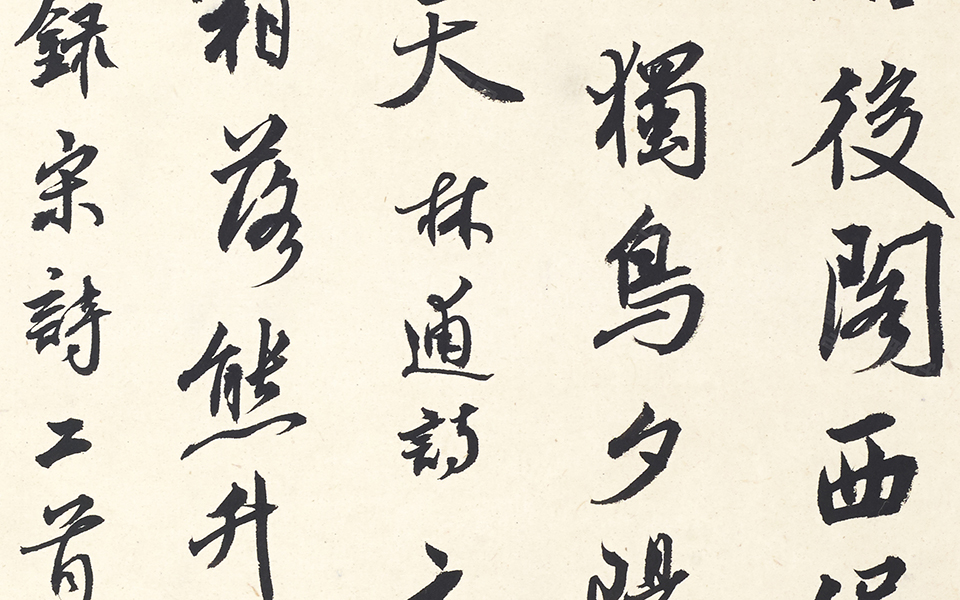 後閣西
獨鳥夕陽
天 林逋詩
霜落熊升
録宋詩二首